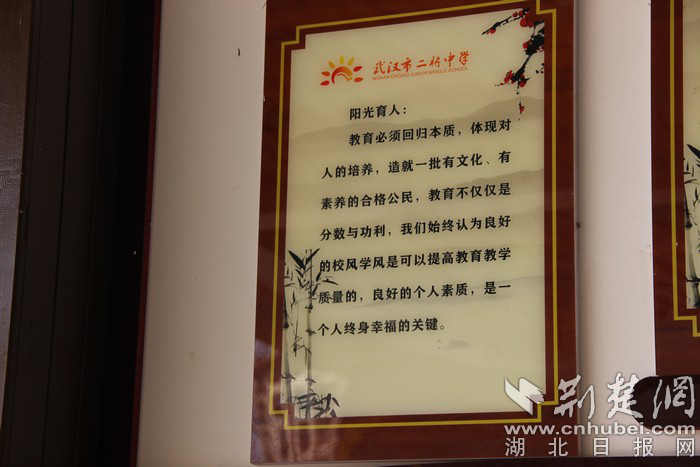 武汉市二桥中学
WUHAN ERQIAO JUNIOR MIDDLE SCHOOL
阳光育人：
教育必须回归本质，体现对
人的培养，造就一批有文化、有
素养的合格公民，教育不仅仅是
分数与功利，我们始终认为良好
的校风学风是可以提高教育教学
质量的，良好的个人素质，是一
个人终身幸福的关键。
荆楚網
www.cnhubei.com
湖北日报网